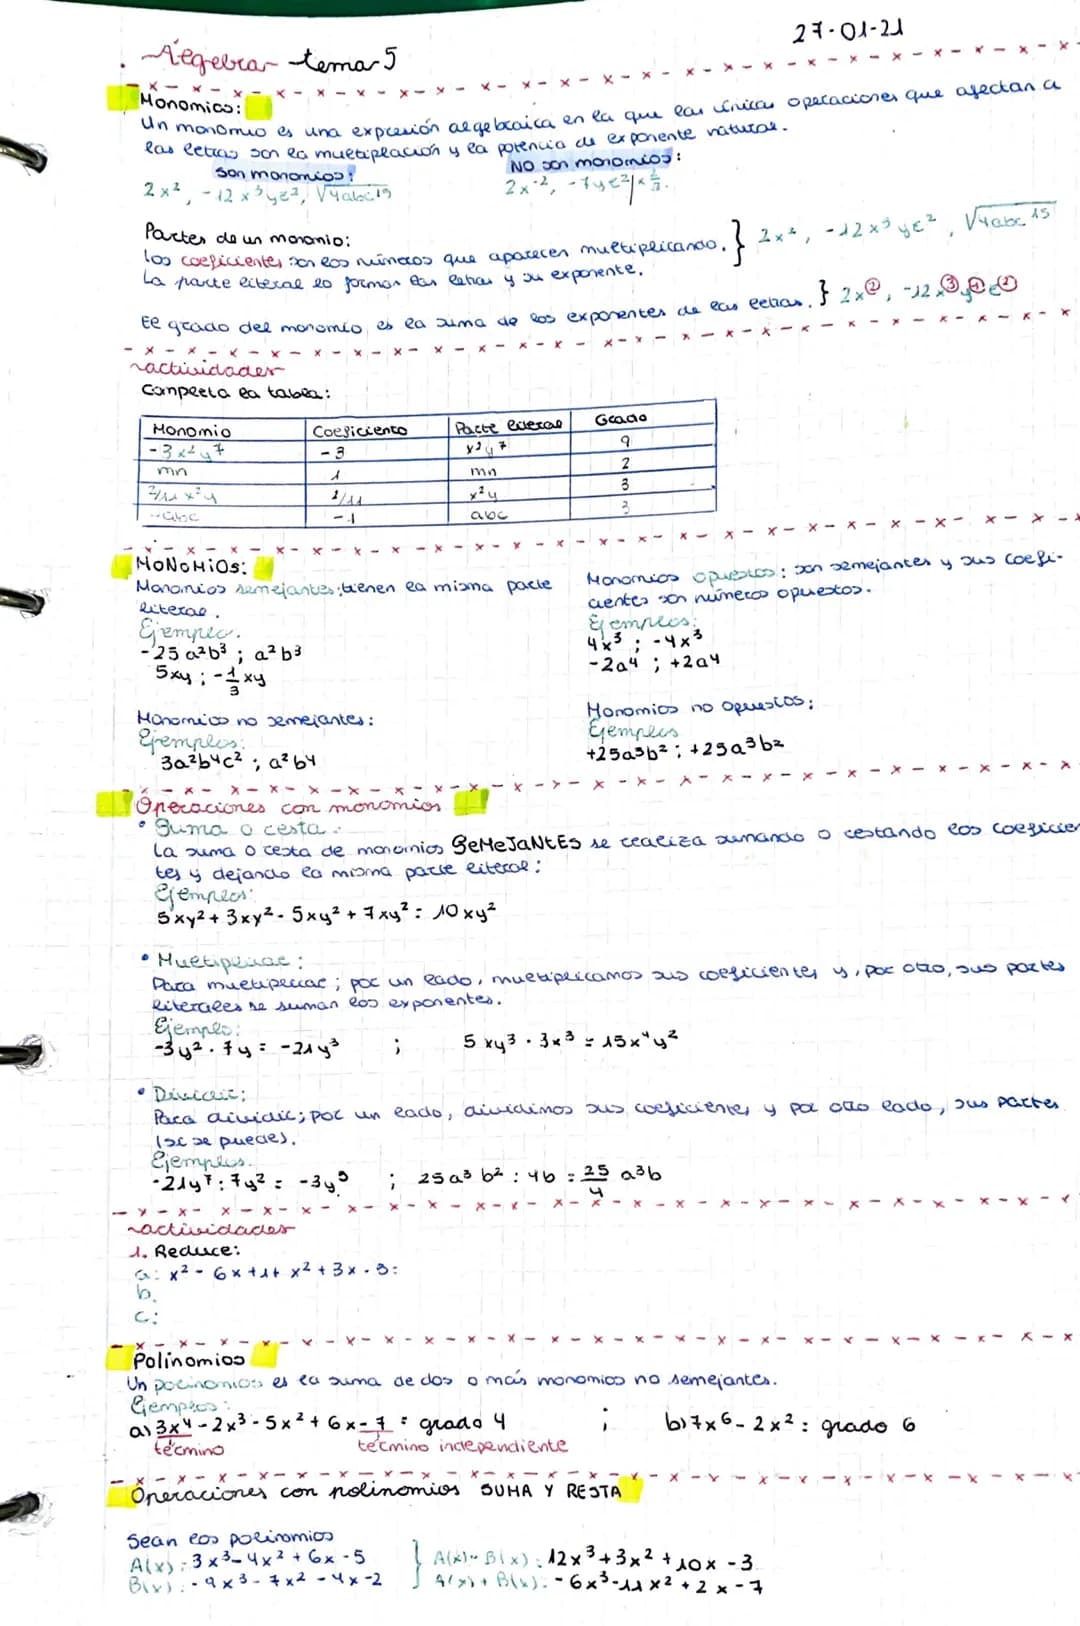 27-01-21
Álgebra tema 5
Monomios:
Un monomio es una expresión algebraica en la que las únicas operaciones que afectan a
las letras son la multiplicación y la potencia de exponente natural.
Son monomios: NO son monomios:
2x², -12x³yz², √4abc¹⁵ 2x⁻², -7yz²
Partes de un monomio:
Los coeficientes son los números que aparecen multiplicando. } 2x², -12x³yz², √4abc¹⁵
La parte literal lo forman las letras y su exponente.
El grado del monomio es la suma de los exponentes de las letras. } 2x②, -12x③y①z②
actividades
Completa la tabla:
Monomio Coeficiente Parte literal Grado
-3x²y⁷ -3 x²y⁷ 9
mn 1 mn 2
2/11 x²y 2/11 x²y 3
-abc -1 abc 3
MONOMIOS:
Monomios semejantes: tienen la misma parte
literal.
Ejemplo:
-25a²b³ ; a²b³
5xy ; -1/3 xy
Monomios no semejantes:
Ejemplos:
3a²b⁴c² ; a²b⁴
Monomios opuestos: son semejantes y sus coefi-
cientes son números opuestos.
Ejemplos:
4x³ ; -4x³
-2a⁴ ; +2a⁴
Monomios no opuestos:
Ejemplos
+25a³b² ; +25a³b²
Operaciones con monomios
• Suma o resta:
La suma o resta de monomios SEMEJANTES se realiza sumando o restando los coeficien
tes y dejando la misma parte literal:
Ejemplos:
5xy² + 3xy² - 5xy² + 7xy² = 10xy²
• Multiplicar:
Para multiplicar; por un lado, multiplicamos sus coeficientes y, por otro, sus partes
literales se suman los exponentes.
Ejemplo:
-3y² · 7y = -21y³ ; 5xy³ · 3x³ = 15x⁴y²
• Dividir:
Para dividir; por un lado, dividimos sus coeficientes y por otro lado, sus partes
(si se puede).
Ejemplos.
-21y⁷ : 7y² = -3y⁵ ; 25a³b² : 4b = 25/4 a³b
actividades
1. Reduce:
a: x² - 6x + 1 + x² + 3x - 3:
b.
c:
Polinomios
Un polinomios es la suma de dos o más monomios no semejantes.
Ejemplos:
a) 3x⁴ - 2x³ - 5x² + 6x - 7 = grado 4 ; b) 7x⁶ - 2x² = grado 6
término término independiente
Operaciones con polinomios SUMA Y RESTA
Sean los polinomios
A(x) = 3x³ - 4x² + 6x - 5 } A(x) - B(x) = 12x³ + 3x² + 10x - 3
B(x) = -9x³ - 7x² - 4x - 2 A(x) + B(x) = -6x³ - 11x² + 2x - 7